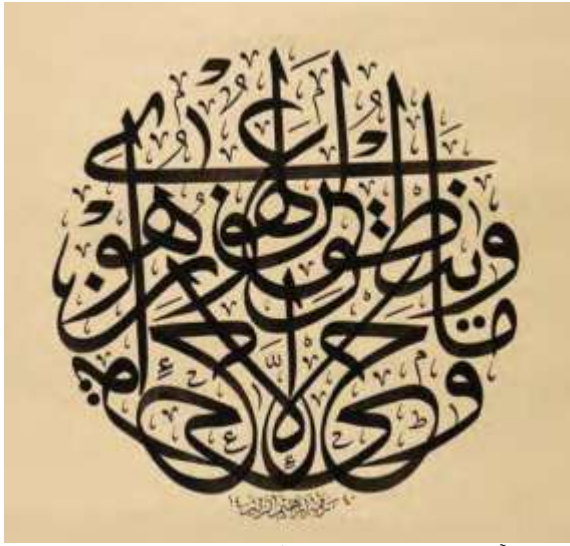 وما ينطق عن الهوى إن هو إلا وحي يوحى